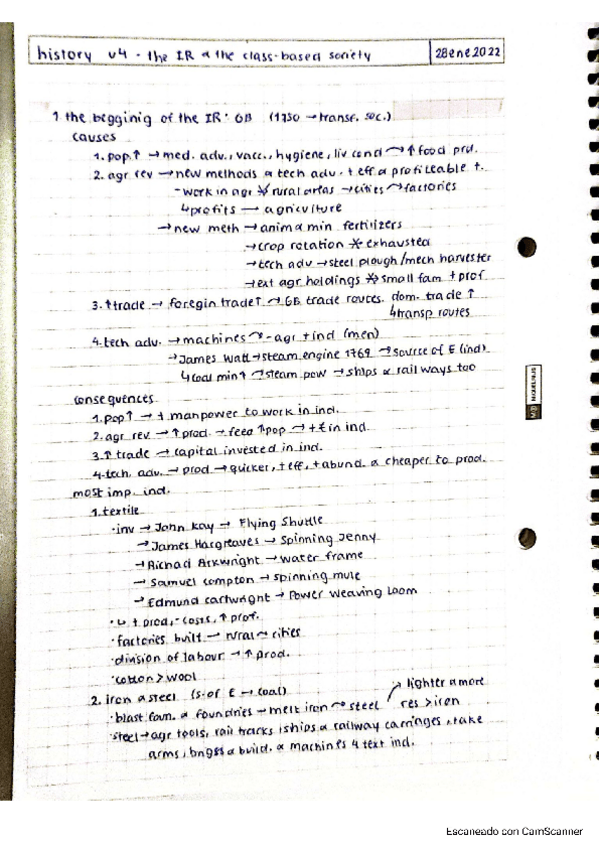 history u4 - the IR & the class-based society 28 ene 2022
1 the beggining of the IR: GB (1750 → transf. soc.)
causes
1. pop.↑ → med. adv., vacc., hygiene, liv cond → ↑ food prd.
2. agr rev → new methods & tech adv. + eff & profiteable +.
- work in agr rural areas → cities → factories
↳ profits → agriculture
→ new meth → anim & min fertilizers
→ crop rotation exhausted
→ tech adv → steel plough/mech harvester
→ ext agr holdings small fam + prof
3. ↑trade → foregin trade↑ → GB trade routes. dom. trade ↑
↳ transp routes
4. tech adv. → machines → - agr + ind (men)
→ James Watt → steam engine 1769 → source of E (ind).
↳ coal min↑ → steam pow → ships & railways too
consequences
1. pop↑ → + manpower to work in ind.
2. agr rev. → ↑ prod. → feed ↑pop → + £ in ind
3. ↑ trade → capital invested in ind.
4. tech. adv. → prod → quicker, + eff, + abund. & cheaper to prod.
most imp. ind.
1. textile
· inv → John Kay → Flying Shuttle
→ James Hargreaves → Spinning Jenny
→ Richad Arkwright → Water frame
→ Samuel compton → spinning mule
→ Edmund cartwright → Power Weaving Loom
· ↳ + prod, - costs, ↑ prof.
· factories built → rural → cities
· division of labour → ↑ prod.
· cotton > wool
2. iron & steel (s. of E → coal) lighter & more
· blast furn. & foundries → melt iron → steel res > iron
· steel → agr tools, rail tracks, ships & railway carriages,
arms, & build. & machines 4 text ind.
MIQUELRIUS
Escaneado con CamScanner